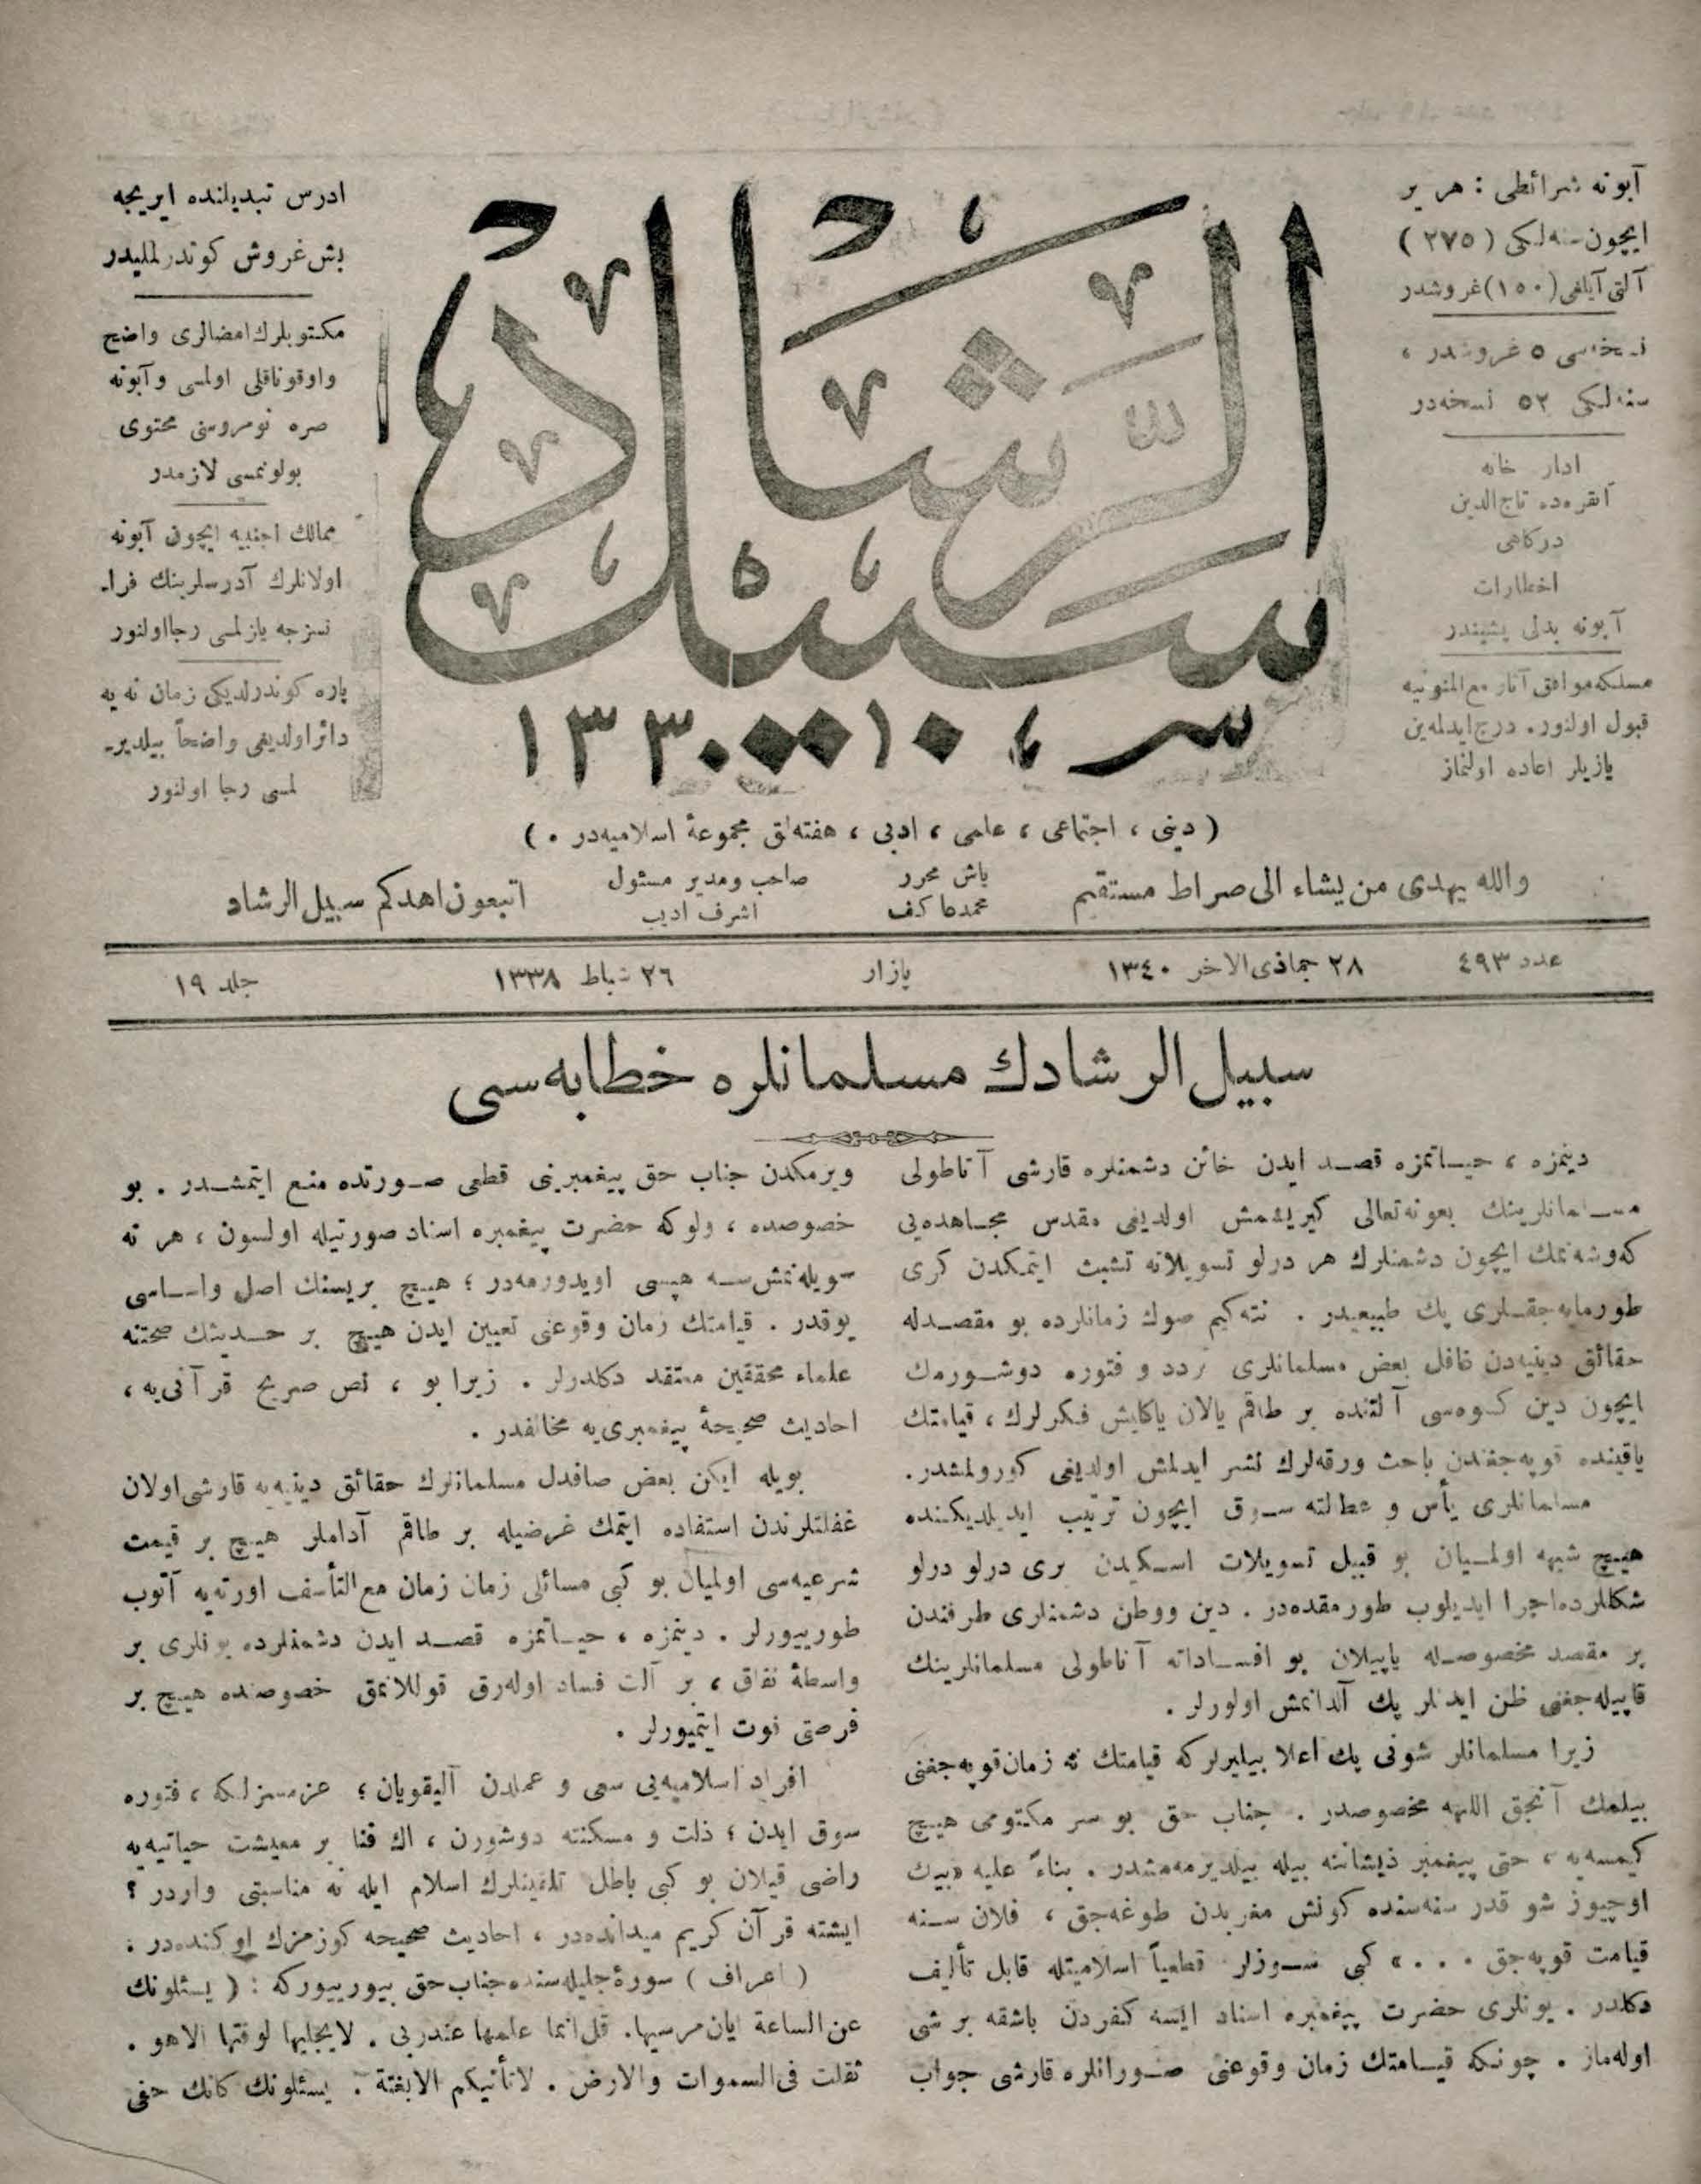 آبونه شرائطی : هر یر
ایچون سنه‌لکی ( ٢٧٥ )
آلتی آیلغی (١٥٠) غروشدر
نسخه‌سی ٥ غروشدر ،
سنه‌لکی ٥٢ نسخه‌در
اداره خانه
آنقره‌ده تاج‌الدین
درکاهی
اخطارات
آبونه بدلی پشیندر
مسلکه موافق آثار مع‌المنونیه
قبول اولنور. درج ایدلمه‌ین
یازیلر اعاده اولنماز
سبیل الرشاد
١٣٣٠
ادرس تبدیلنده ایریجه
بش غروش کوندرلملیدر
مکتوبلرك امضالری واضح
واوقوناقلی اولمسی وآبونه
صره نومروسنی محتوی
بولونمسی لازمدر
ممالك اجنبیه ایچون آبونه
اولانلرك آدرسلرینك فرا-
نسزجه یازلمسی رجا اولنور
پاره کوندرلدیکی زمان نه‌یه
دائر اولدیغی واضحاً بیلدیر-
لمسی رجا اولنور
( دینی ، اجتماعی ، علمی ، ادبی ، هفته‌لق مجموعهٔ اسلامیه‌در . )
والله یهدی من یشاء الی صراط مستقیم
باش محرر
محمد عاکف
صاحب ومدیر مسئول
اشرف ادیب
اتبعون اهدکم سبیل الرشاد
عدد ٤٩٣
٢٨ جماذی‌الاخر ١٣٤٠
پازار
٢٦ شباط ١٣٣٨
جلد ١٩
سبیل الرشادك مسلمانلره خطابه‌سی
دینمزه ، حیاتمزه قصد ایدن خائن دشمنلره قارشی آناطولی
مسلمانلرینك بعونه‌تعالی کیریشمش اولدیغی مقدس مجاهده‌یی
که‌وشه‌تمك ایچون دشمنلرك هر درلو تسویلاته تشبث ایتمکدن کری
طورمایه‌جقلری پك طبیعیدر . نته‌کیم صوك زمانلرده بو مقصدله
حقائق دینیه‌دن غافل بعض مسلمانلری تردد و فتوره دوشورمك
ایچون دین کسوه‌سی آلتنده بر طاقم یالان یاکلیش فکرلرك ، قیامتك
یاقینده قوپه‌جغندن باحث ورقه‌لرك نشر ایدلمش اولدیغی کورولمشدر.
مسلمانلری یأس و عطالته سوق ایچون ترتیب ایدیلدیکنده
هیچ شبهه اولمیان بو قبیل تسویلات اسکیدن بری درلو درلو
شکللرده اجرا ایدیلوب طورمقده‌در . دین ووطن دشمنلری طرفندن
بر مقصد مخصوصله یاپیلان بو افساداته آناطولی مسلمانلرینك
قاپیله‌جغنی ظن ایدنلر پك آلدانمش اولورلر .
زیرا مسلمانلر شونی پك اعلا بیلیرلرکه قیامتك نه زمان قوپه‌جغنی
بیلمك آنجق اللهه مخصوصدر . جناب حق بو سر مکتومی هیچ
کیمسه‌یه ، حتی پیغمبر ذیشاننه بیله بیلدیرمه‌مشدر . بناءً علیه «بیك
اوچیوز شو قدر سنه‌سنده کونش مغربدن طوغه‌جق ، فلان سنه
قیامت قوپه‌جق . . . » کبی سوزلر قطعیاً اسلامیتله قابل تألیف
دکلدر . بونلری حضرت پیغمبره اسناد ایسه کفردن باشقه بر شی
اوله‌ماز . چونکه قیامتك زمان وقوعنی صورانلره قارشی جواب
ویرمکدن جناب حق پیغمبرینی قطعی صورتده منع ایتمشدر . بو
خصوصده ، ولوکه حضرت پیغمبره اسناد صورتیله اولسون ، هر نه
سویله‌نمش‌سه هپسی اویدورمه‌در ؛ هیچ بریسنك اصل واساسی
یوقدر . قیامتك زمان وقوعنی تعیین ایدن هیچ بر حدیثك صحتنه
علماء محققین معتقد دکلدرلر . زیرا بو ، نص صریح قرآنی‌یه ،
احادیث صحیحهٔ پیغمبری‌یه مخالفدر .
بویله ایکن بعض صافدل مسلمانلرك حقائق دینیه‌یه قارشی اولان
غفلتلرندن استفاده ایتمك غرضیله بر طاقم آداملر هیچ بر قیمت
شرعیه‌سی اولمیان بو کبی مسائلی زمان زمان مع‌التأسف اورته‌یه آتوب
طورییورلر . دینمزه ، حیاتمزه قصد ایدن دشمنلرده بونلری بر
واسطهٔ نفاق ، بر آلت فساد اوله‌رق قوللانمق خصوصنده هیچ بر
فرصتی فوت ایتمیورلر .
افراد اسلامیه‌یی سعی و عملدن آلیقویان ؛ عزمسزلکه ، فتوره
سوق ایدن ؛ ذلت و مسکنته دوشورن ، اك فنا بر معیشت حیاتیه‌یه
راضی قیلان بو کبی باطل تلقینلرك اسلام ایله نه مناسبتی واردر ؟
ایشته قرآن کریم میدانده‌در ، احادیث صحیحه کوزمزك اوکنده‌در :
( اعراف ) سورهٔ جلیله‌سنده جناب حق بیورییورکه : ( یسئلونك
عن الساعة ایان مرسیها. قل انما علمها عند ربی . لایجلیها لوقتها الا هو .
ثقلت فی السموات والارض . لاتأتیکم الا بغتة . یسئلونك کانك حفی